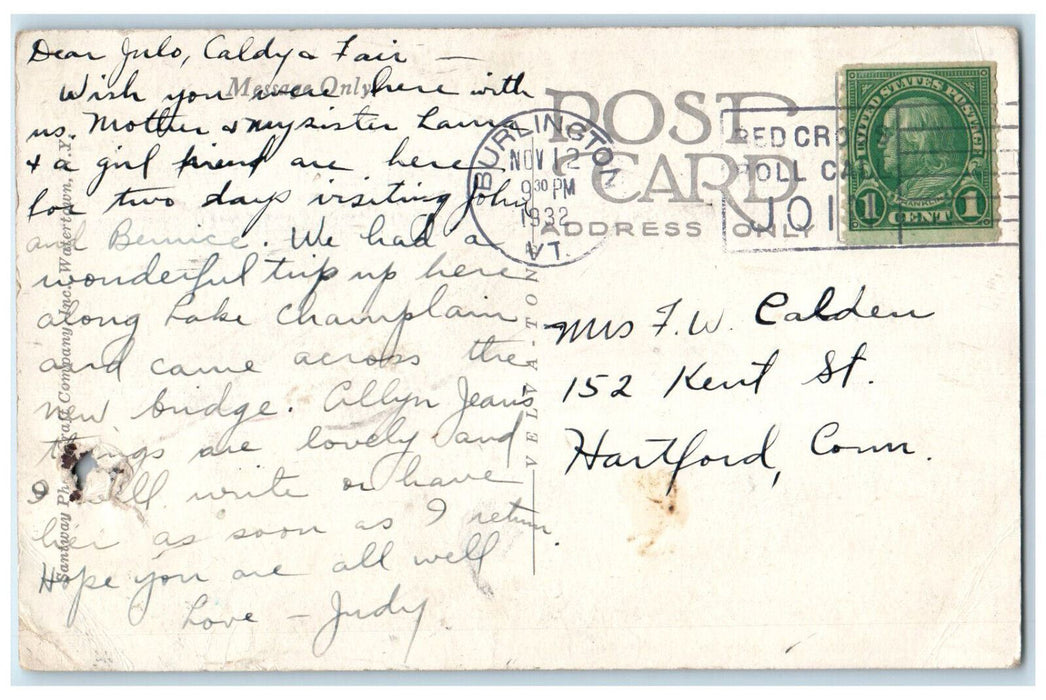 Dear Julo, Caldy & Fair —
Message Only
Wish you were here with
us. Mother & my sister Laura
& a girl friend are here
for two days visiting John
and Bernice. We had a
wonderful trip up here
along Lake Champlain
and came across the
new bridge. Allyn Jean's
things are lovely and
I will write or have
her as soon as I return.
Hope you are all well
Love — Judy.
Santway Photo-Craft Company, Inc., Watertown, N.Y.
VELVA-TONE
POST
CARD
ADDRESS ONLY
BURLINGTON
NOV 12
9 30 PM
1932
VT.
RED CROSS
ROLL CALL
JOIN
UNITED STATES POSTAGE
FRANKLIN
1 CENT 1
Mrs F. W. Calden
152 Kent St.
Hartford, Conn.